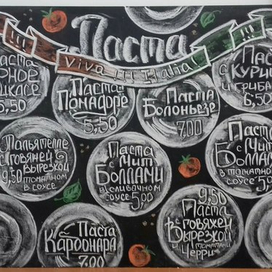 Паста
!!! Viva !!! Italia! !!!
Паста
Чёрное
6,50
Паста
Помадоре
5,50
Паста
Болоньезе
7.00
Паста с
Курицей
и грибами
6,50
Тальятелле
с говяжей
вырезкой
9,50 в томатном
соусе
Паста
с Мит
Боллами
в сливочном
соусе 5.00
Паста
с Мит
Боллами
в томатном
соусе 5.00
Паста
Карбонара
7.00
9,50
Паста
с говяжей
вырезкой
и томатами
Черри